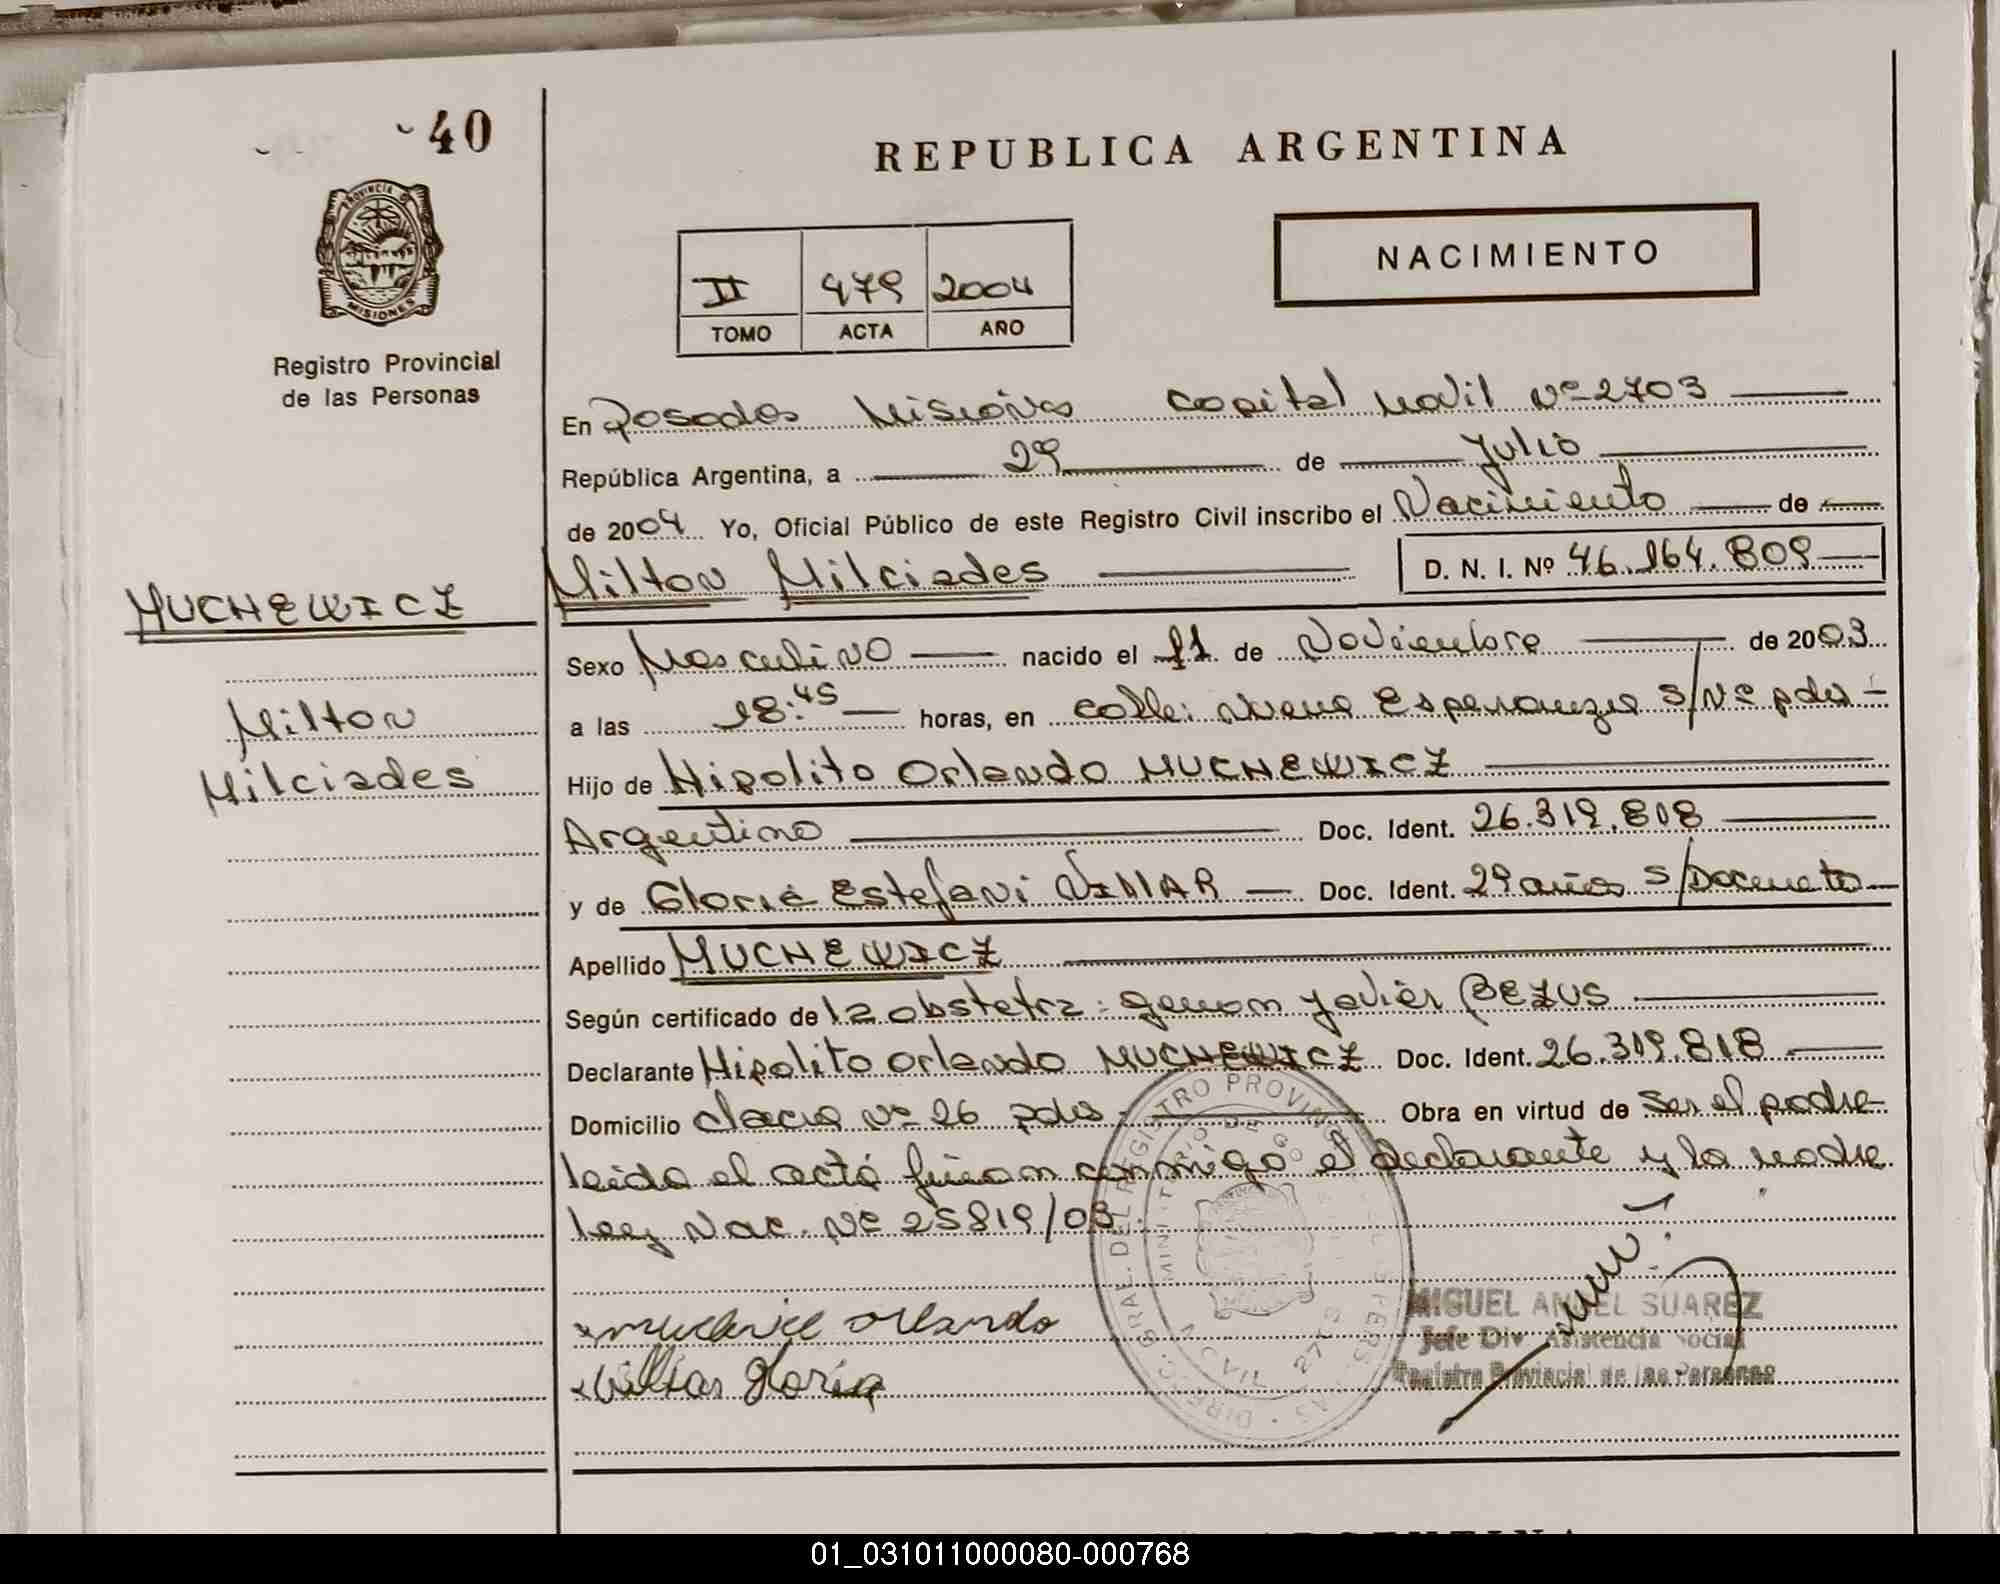 40
PROVINCIA DE
MISIONES
Registro Provincial
de las Personas
REPUBLICA ARGENTINA
NACIMIENTO
II 479 2004
TOMO ACTA AÑO
En Posadas Misiones Capital Movil Nº 2703
República Argentina, a 29 de Julio
de 2004 Yo, Oficial Público de este Registro Civil inscribo el Nacimiento de
Milton Milciades D. N. I. Nº 46.164.809
MUCHEWICZ
Milton
Milciades
Sexo Masculino nacido el 11 de Noviembre de 2003
a las 18:45 horas, en calle: Nueva Esperanza S/Nº pdas
Hijo de Hipolito Orlando MUCHEWICZ
Argentino Doc. Ident. 26.319.818
y de Gloria Estefani Doc. Ident. 29 años S/Documento
Apellido MUCHEWICZ
Según certificado de la obstetra: German Javier BEZUS
Declarante Hipolito Orlando MUCHEWICZ Doc. Ident. 26.319.818
Domicilio chacra Nº 26 pdas Obra en virtud de ser el padre
leida el acta firman conmigo el declarante y la madre
Ley Nac. Nº 25819/03.
Orlando
Villar Gloria
MIGUEL ANGEL SUAREZ
Jefe Div. Asistencia Social
Registro Provincial de las Personas
01_031011000080-000768